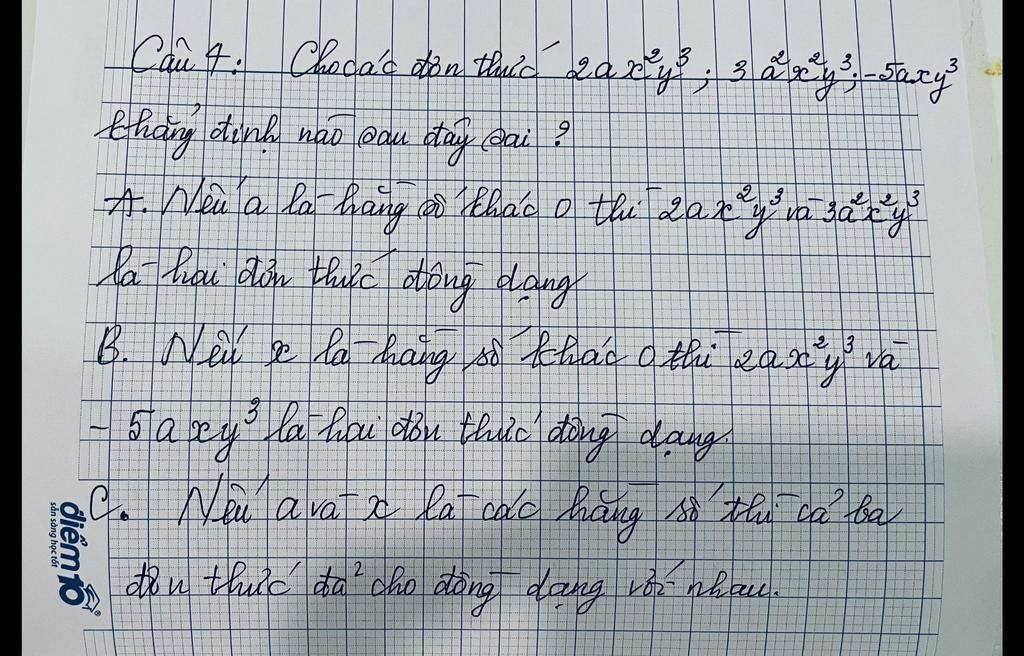 Câu 4: Cho các đơn thức 2ax²y³; 3a²x²y³; -5axy³
khẳng định nào sau đây sai ?
A. Nếu a là hằng số khác 0 thì 2ax²y³ và 3a²x²y³
là hai đơn thức đồng dạng
B. Nếu x là hằng số khác 0 thì 2ax²y³ và
- 5axy³ là hai đơn thức đồng dạng.
C. Nếu a và x là các hằng số thì cả ba
đơn thức đã cho đồng dạng với nhau.
điểm 10
sẵn sàng học tốt